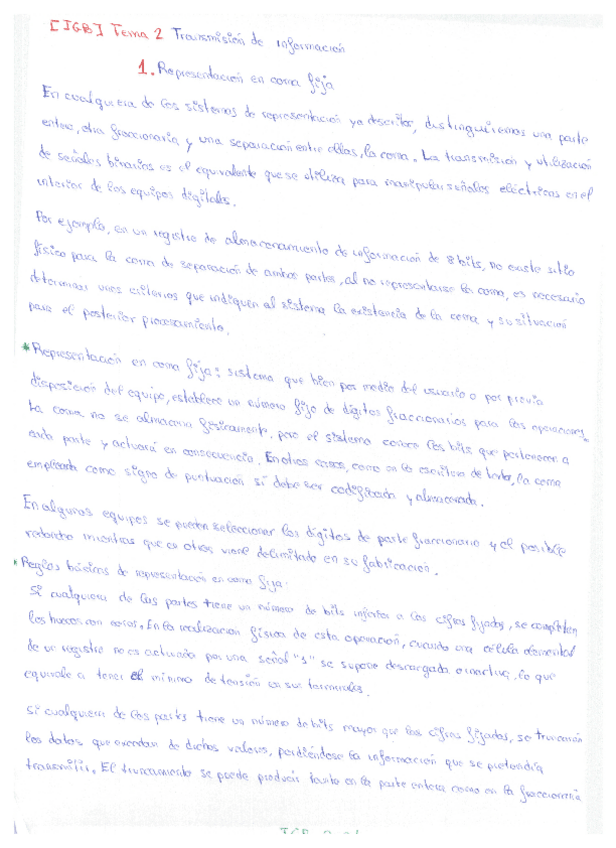 [IGB] Tema 2 Transmisión de información
1. Representación en coma fija
En cualquiera de los sistemas de representación ya descritos, distinguiremos una parte
entera, otra fraccionaria y una separación entre ellas, la coma. La transmisión y utilización
de señales binarias es el equivalente que se utiliza para manipular señales eléctricas en el
interior de los equipos digitales.
Por ejemplo, en un registro de almacenamiento de información de 8 bits, no existe sitio
físico para la coma de separación de ambas partes, al no representarse la coma, es necesario
determinar unos criterios que indiquen al sistema la existencia de la coma y su situación
para el posterior procesamiento.
* Representación en coma fija: sistema que bien por medio del usuario o por previa
disposición del equipo, establece un número fijo de dígitos fraccionarios para las operaciones.
La coma no se almacena físicamente, pero el sistema conoce los bits que pertenecen a
cada parte y actuará en consecuencia. En otros casos, como en la escritura de textos, la coma
empleada como signo de puntuación sí debe ser codificada y almacenada.
En algunos equipos se pueden seleccionar los dígitos de parte fraccionaria y el posible
redondeo mientras que en otros viene delimitado en su fabricación.
* Reglas básicas de representación en coma fija:
Si cualquiera de las partes tiene un número de bits inferior a las cifras fijadas, se completan
los huecos con ceros. En la realización física de esta operación, cuando una célula elemental
de un registro no es activada por una señal "1" se supone descargada o inactiva, lo que
equivale a tener el mínimo de tensión en sus terminales.
Si cualquiera de las partes tiene un número de bits mayor que las cifras fijadas, se truncarán
los datos que excedan de dichos valores, perdiéndose la información que se pretendía
transmitir. El truncamiento se puede producir tanto en la parte entera como en la fraccionaria